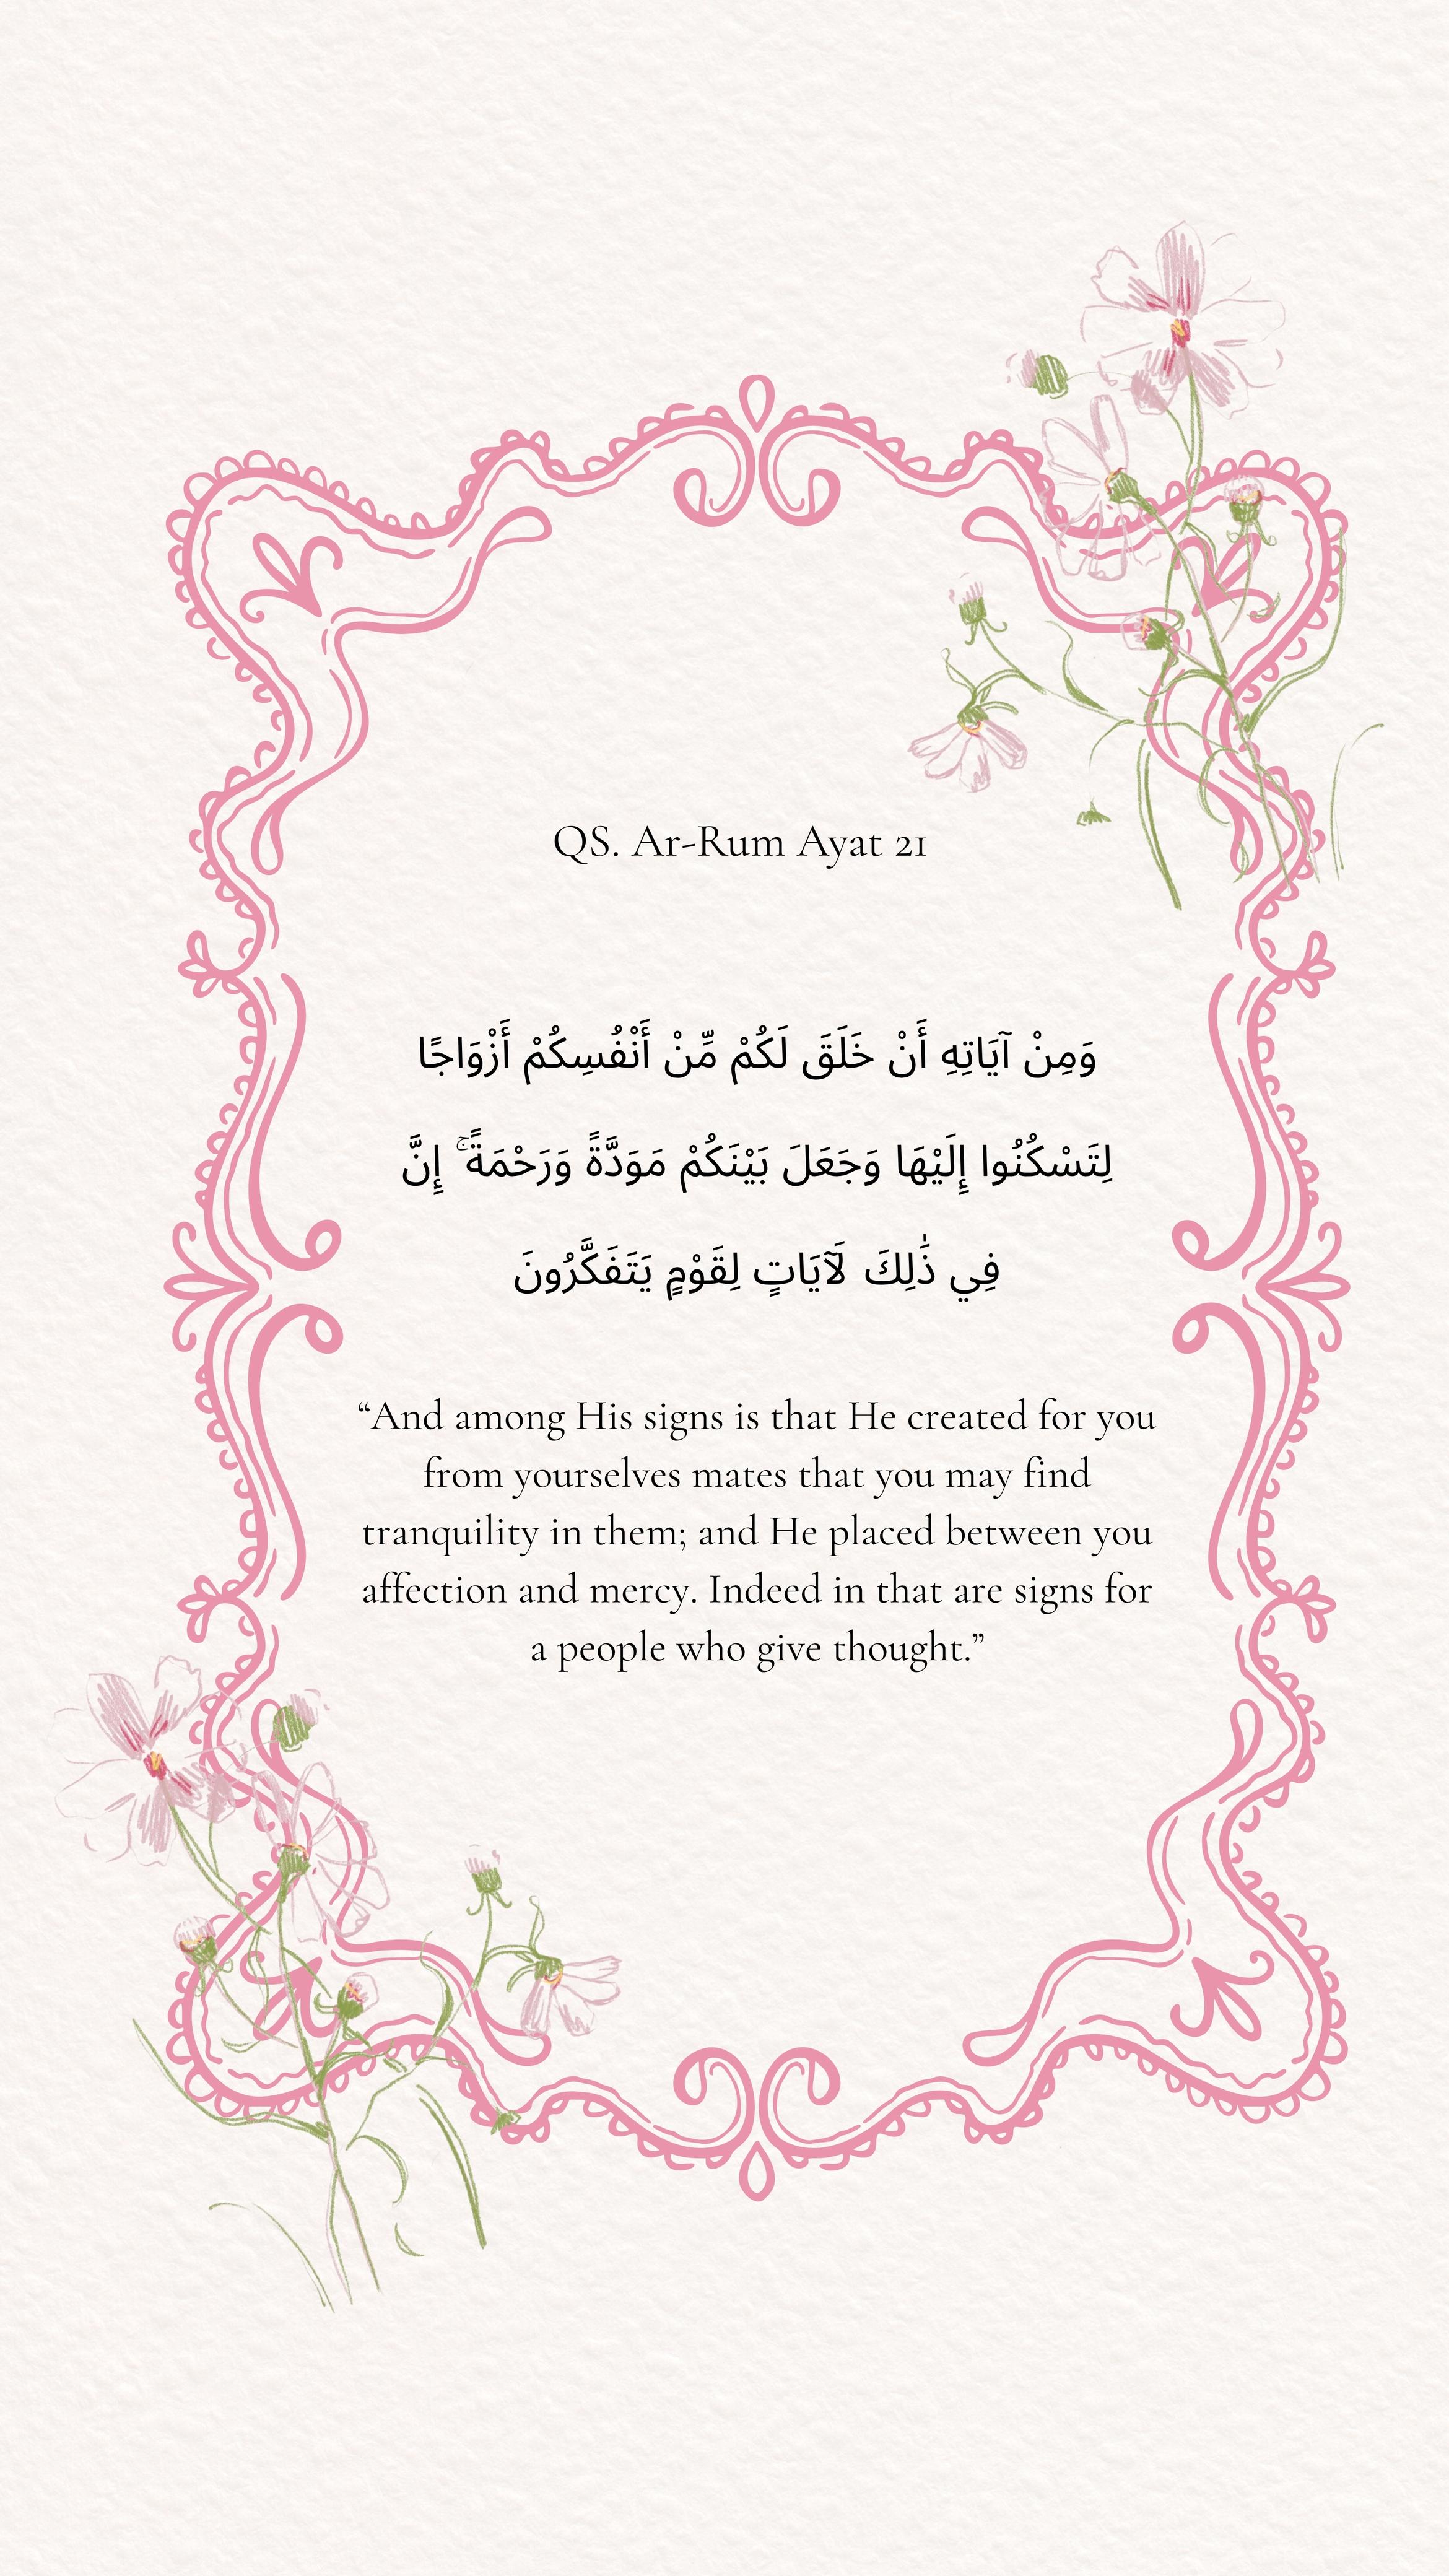 QS. Ar-Rum Ayat 21
وَمِنْ آيَاتِهِ أَنْ خَلَقَ لَكُمْ مِّنْ أَنْفُسِكُمْ أَزْوَاجًا
لِتَسْكُنُوا إِلَيْهَا وَجَعَلَ بَيْنَكُمْ مَوَدَّةً وَرَحْمَةً ۚ إِنَّ
فِي ذَٰلِكَ لَآيَاتٍ لِقَوْمٍ يَتَفَكَّرُونَ
“And among His signs is that He created for you
from yourselves mates that you may find
tranquility in them; and He placed between you
affection and mercy. Indeed in that are signs for
a people who give thought.”